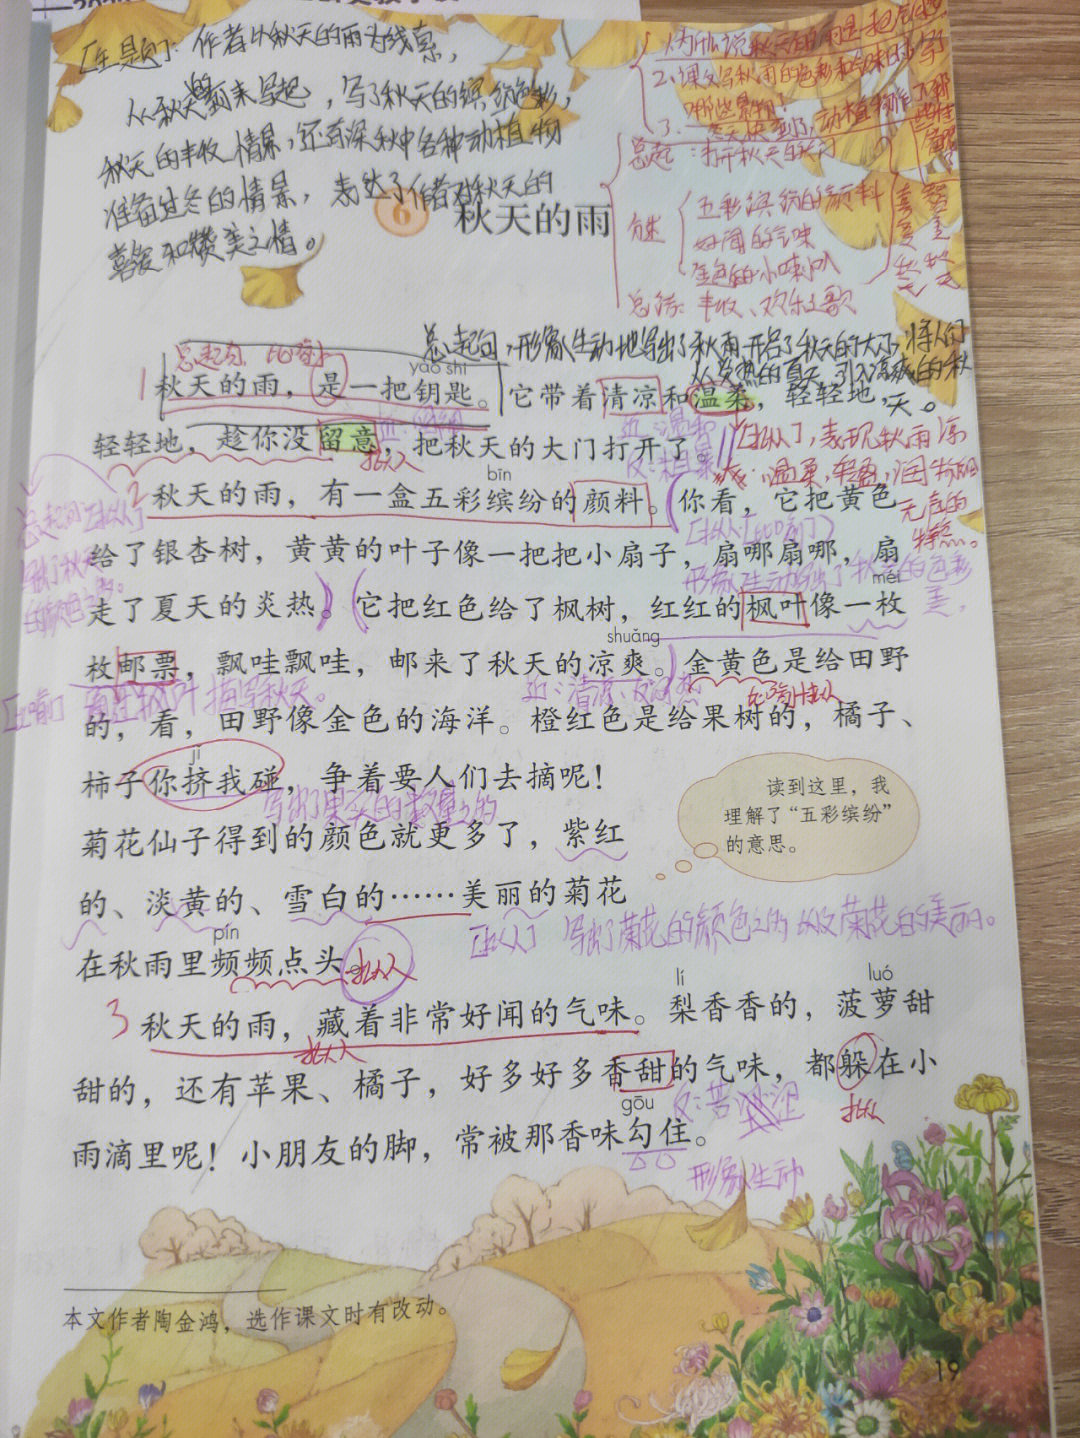 [主题]：作者以秋天的雨为线索，
从秋天的到来写起，写了秋天的缤纷色彩，
秋天的丰收情景，还有深秋中各种动植物
准备过冬的情景，表达了作者对秋天的
喜爱和赞美之情。
1.为什么说秋天的雨是一把
2.课文写秋雨的色彩和气味时写了
哪些景物？
3.
总起：打开秋天的大门
分述
五彩缤纷的颜料
好闻的气味
金色的小喇叭
总结：丰收、欢乐之歌
6 秋天的雨
总起句，形象生动地写出了秋雨开启了秋天的大门，将人们
从炎热的夏天，引入凉爽的秋
天。
总起句 比喻
yào shi
1 秋天的雨，是一把钥匙。它带着清凉和温柔，轻轻地，
轻轻地，趁你没留意，把秋天的大门打开了。
近：温和
拟人
[拟人]，表现秋雨凉
爽、温柔、轻盈、润物细
无声的
特点。
bīn
2 秋天的雨，有一盒五彩缤纷的颜料。你看，它把黄色
总起句[拟人]
[拟人][比喻]
给了银杏树，黄黄的叶子像一把把小扇子，扇哪扇哪，扇
形象生动写出了秋天的色彩
美。
méi
走了夏天的炎热。它把红色给了枫树，红红的枫叶像一枚
shuǎng
枚邮票，飘哇飘哇，邮来了秋天的凉爽。金黄色是给田野
[比喻]
描写秋天。
近：清凉
的，看，田野像金色的海洋。橙红色是给果树的，橘子、
jǐ
柿子你挤我碰，争着要人们去摘呢！
写出了果实的数量之多
菊花仙子得到的颜色就更多了，紫红
的、淡黄的、雪白的……美丽的菊花
读到这里，我
理解了“五彩缤纷”
的意思。
[拟人] 写出了菊花的颜色之多以及菊花的美丽。
pín
在秋雨里频频点头。
拟人
lí luó
3 秋天的雨，藏着非常好闻的气味。梨香香的，菠萝甜
拟人
甜的，还有苹果、橘子，好多好多香甜的气味，都躲在小
gōu
反：苦涩
拟人
雨滴里呢！小朋友的脚，常被那香味勾住。
形象生动
本文作者陶金鸿，选作课文时有改动。
19